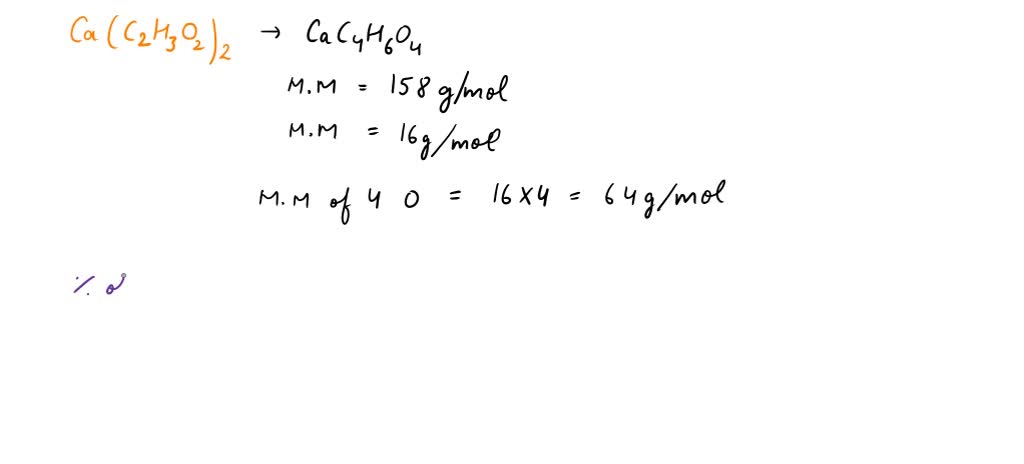 Ca(C₂H₃O₂)₂ → CaC₄H₆O₄
M.M = 158 g/mol
M.M = 16g/mol
M.M of 4 O = 16X4 = 64g/mol
%